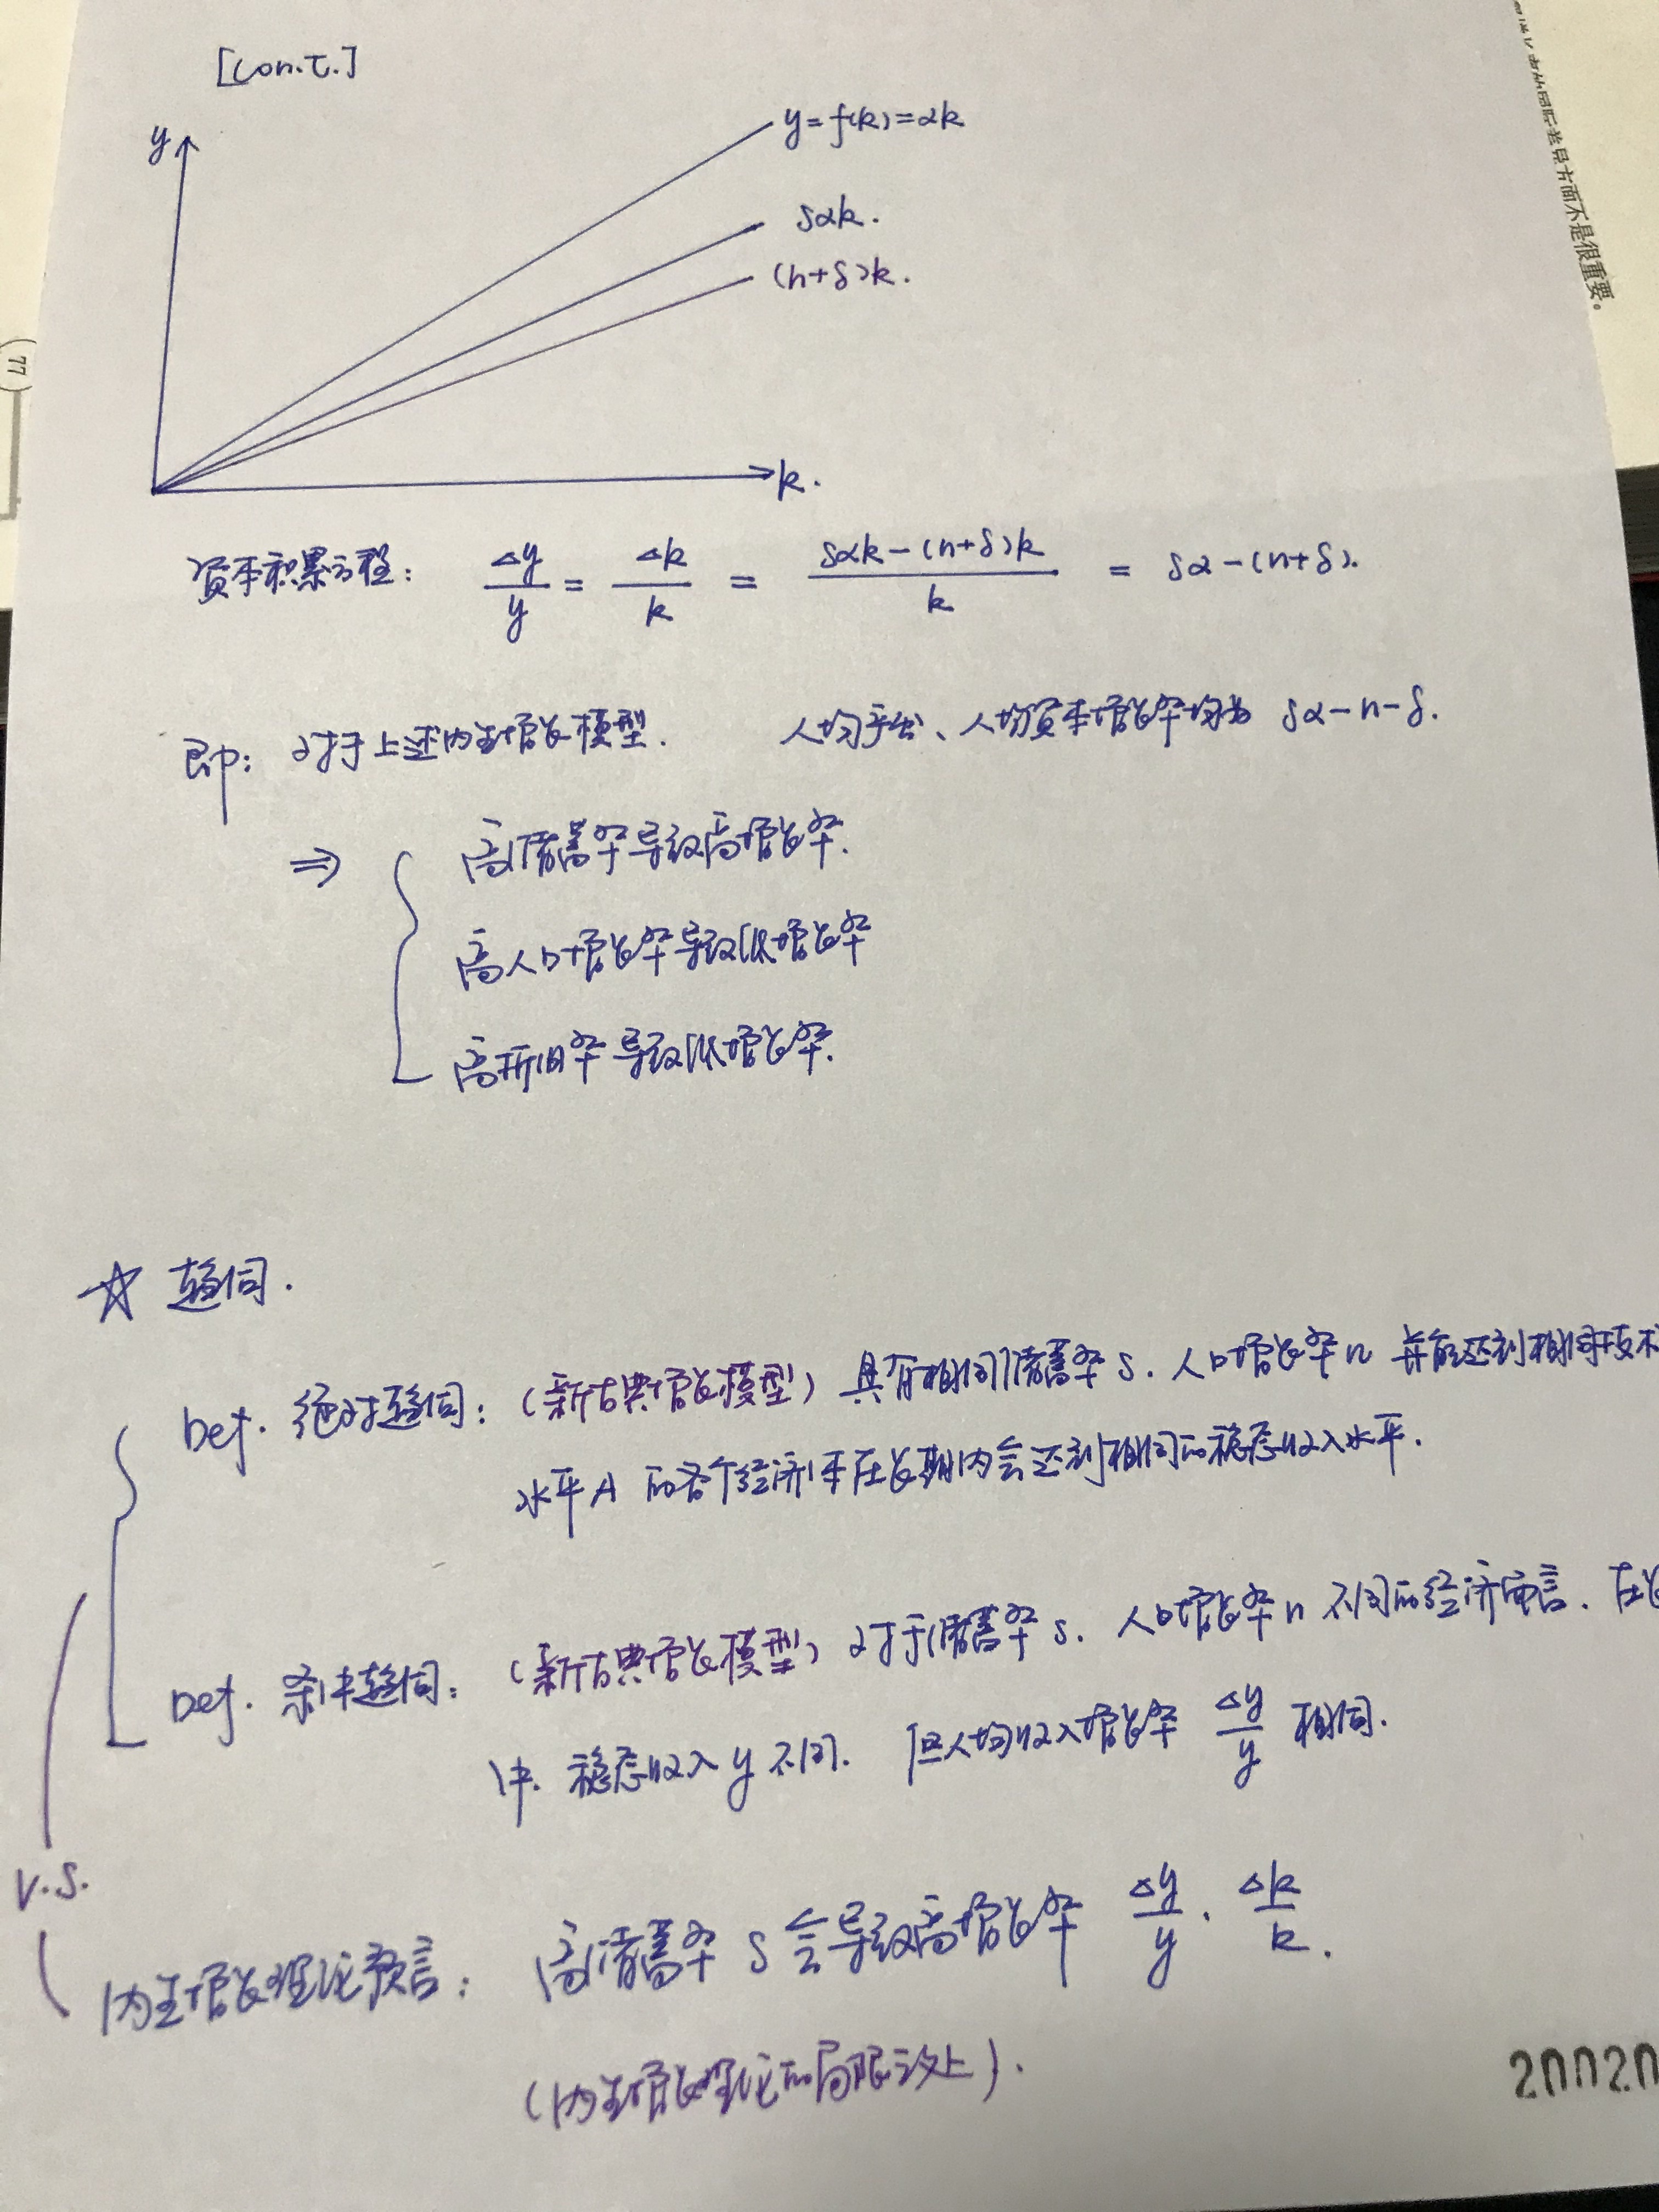 [con.t.]
y
y=f(k)=αk
sαk.
(n+δ)k.
k.
资本积累方程: Δy/y = Δk/k = sαk-(n+δ)k/k = sα-(n+δ).
即: 对于上述内生增长模型. 人均产出、人均资本增长率均为 sα-n-δ.
⇒ 高储蓄率导致高增长率.
高人口增长率导致低增长率
高折旧率导致低增长率.
☆ 趋同.
Def. 绝对趋同: (新古典增长模型) 具有相同储蓄率 s. 人口增长率 n 并能达到相同技术
水平 A 的各个经济体在长期内会达到相同的稳态收入水平.
Def. 条件趋同: (新古典增长模型) 对于储蓄率 s. 人口增长率 n 不同的经济而言. 在
件. 稳态收入 y 不同. 但人均收入增长率 Δy/y 相同.
V.S.
内生增长理论预言: 高储蓄率 s 会导致高增长率 Δy/y. Δk/k.
(内生增长理论的局限之处).
77
差异方面不是很重要。
20020